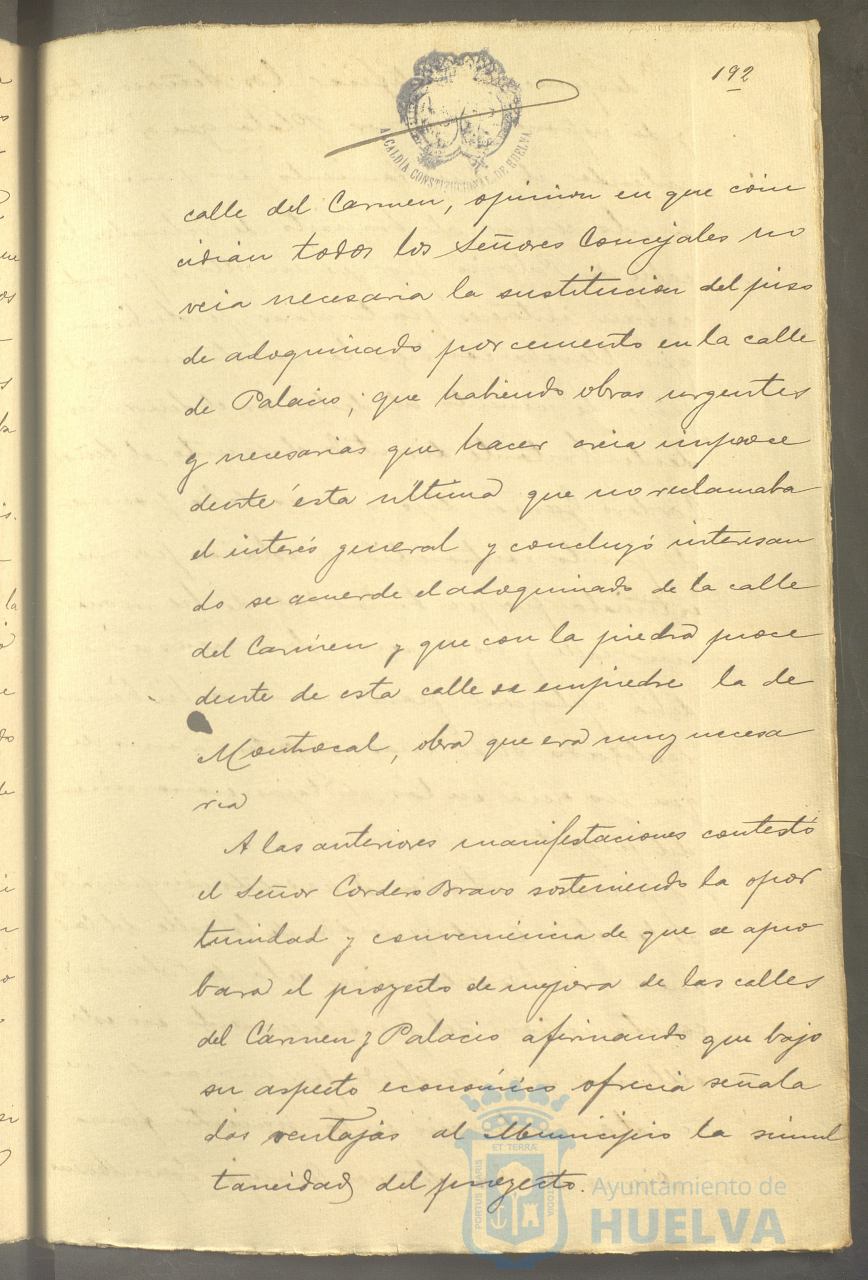 192
ALCALDÍA CONSTITUCIONAL DE HUELVA
calle del Carmen, opinion en que coin
cidian todos los Señores Concejales no
veia necesaria la sustitucion del piso
de adoquinado por cemento en la calle
de Palacio; que habiendo obras urgentes
y necesarias que hacer creia improce
dente ésta última que no reclamaba
el interés general y concluyó interesan
do se acuerde el adoquinado de la calle
del Cármen y que con la piedra proce
dente de esta calle se empiedre la de
Montrocal, obra que era muy necesa
ria
A las anteriores manifestaciones contestó
el Señor Cordero Bravo sosteniendo la opor
tunidad y conveniencia de que se apro
bara el proyecto de mejora de las calles
del Cármen y Palacio afirmando que bajo
su aspecto económico ofrecia señala
das ventajas al Municipio la simul
taneidad del proyecto.
ET TERRÆ
PORTUS MARIS
CUSTODIA
Ayuntamiento de
HUELVA